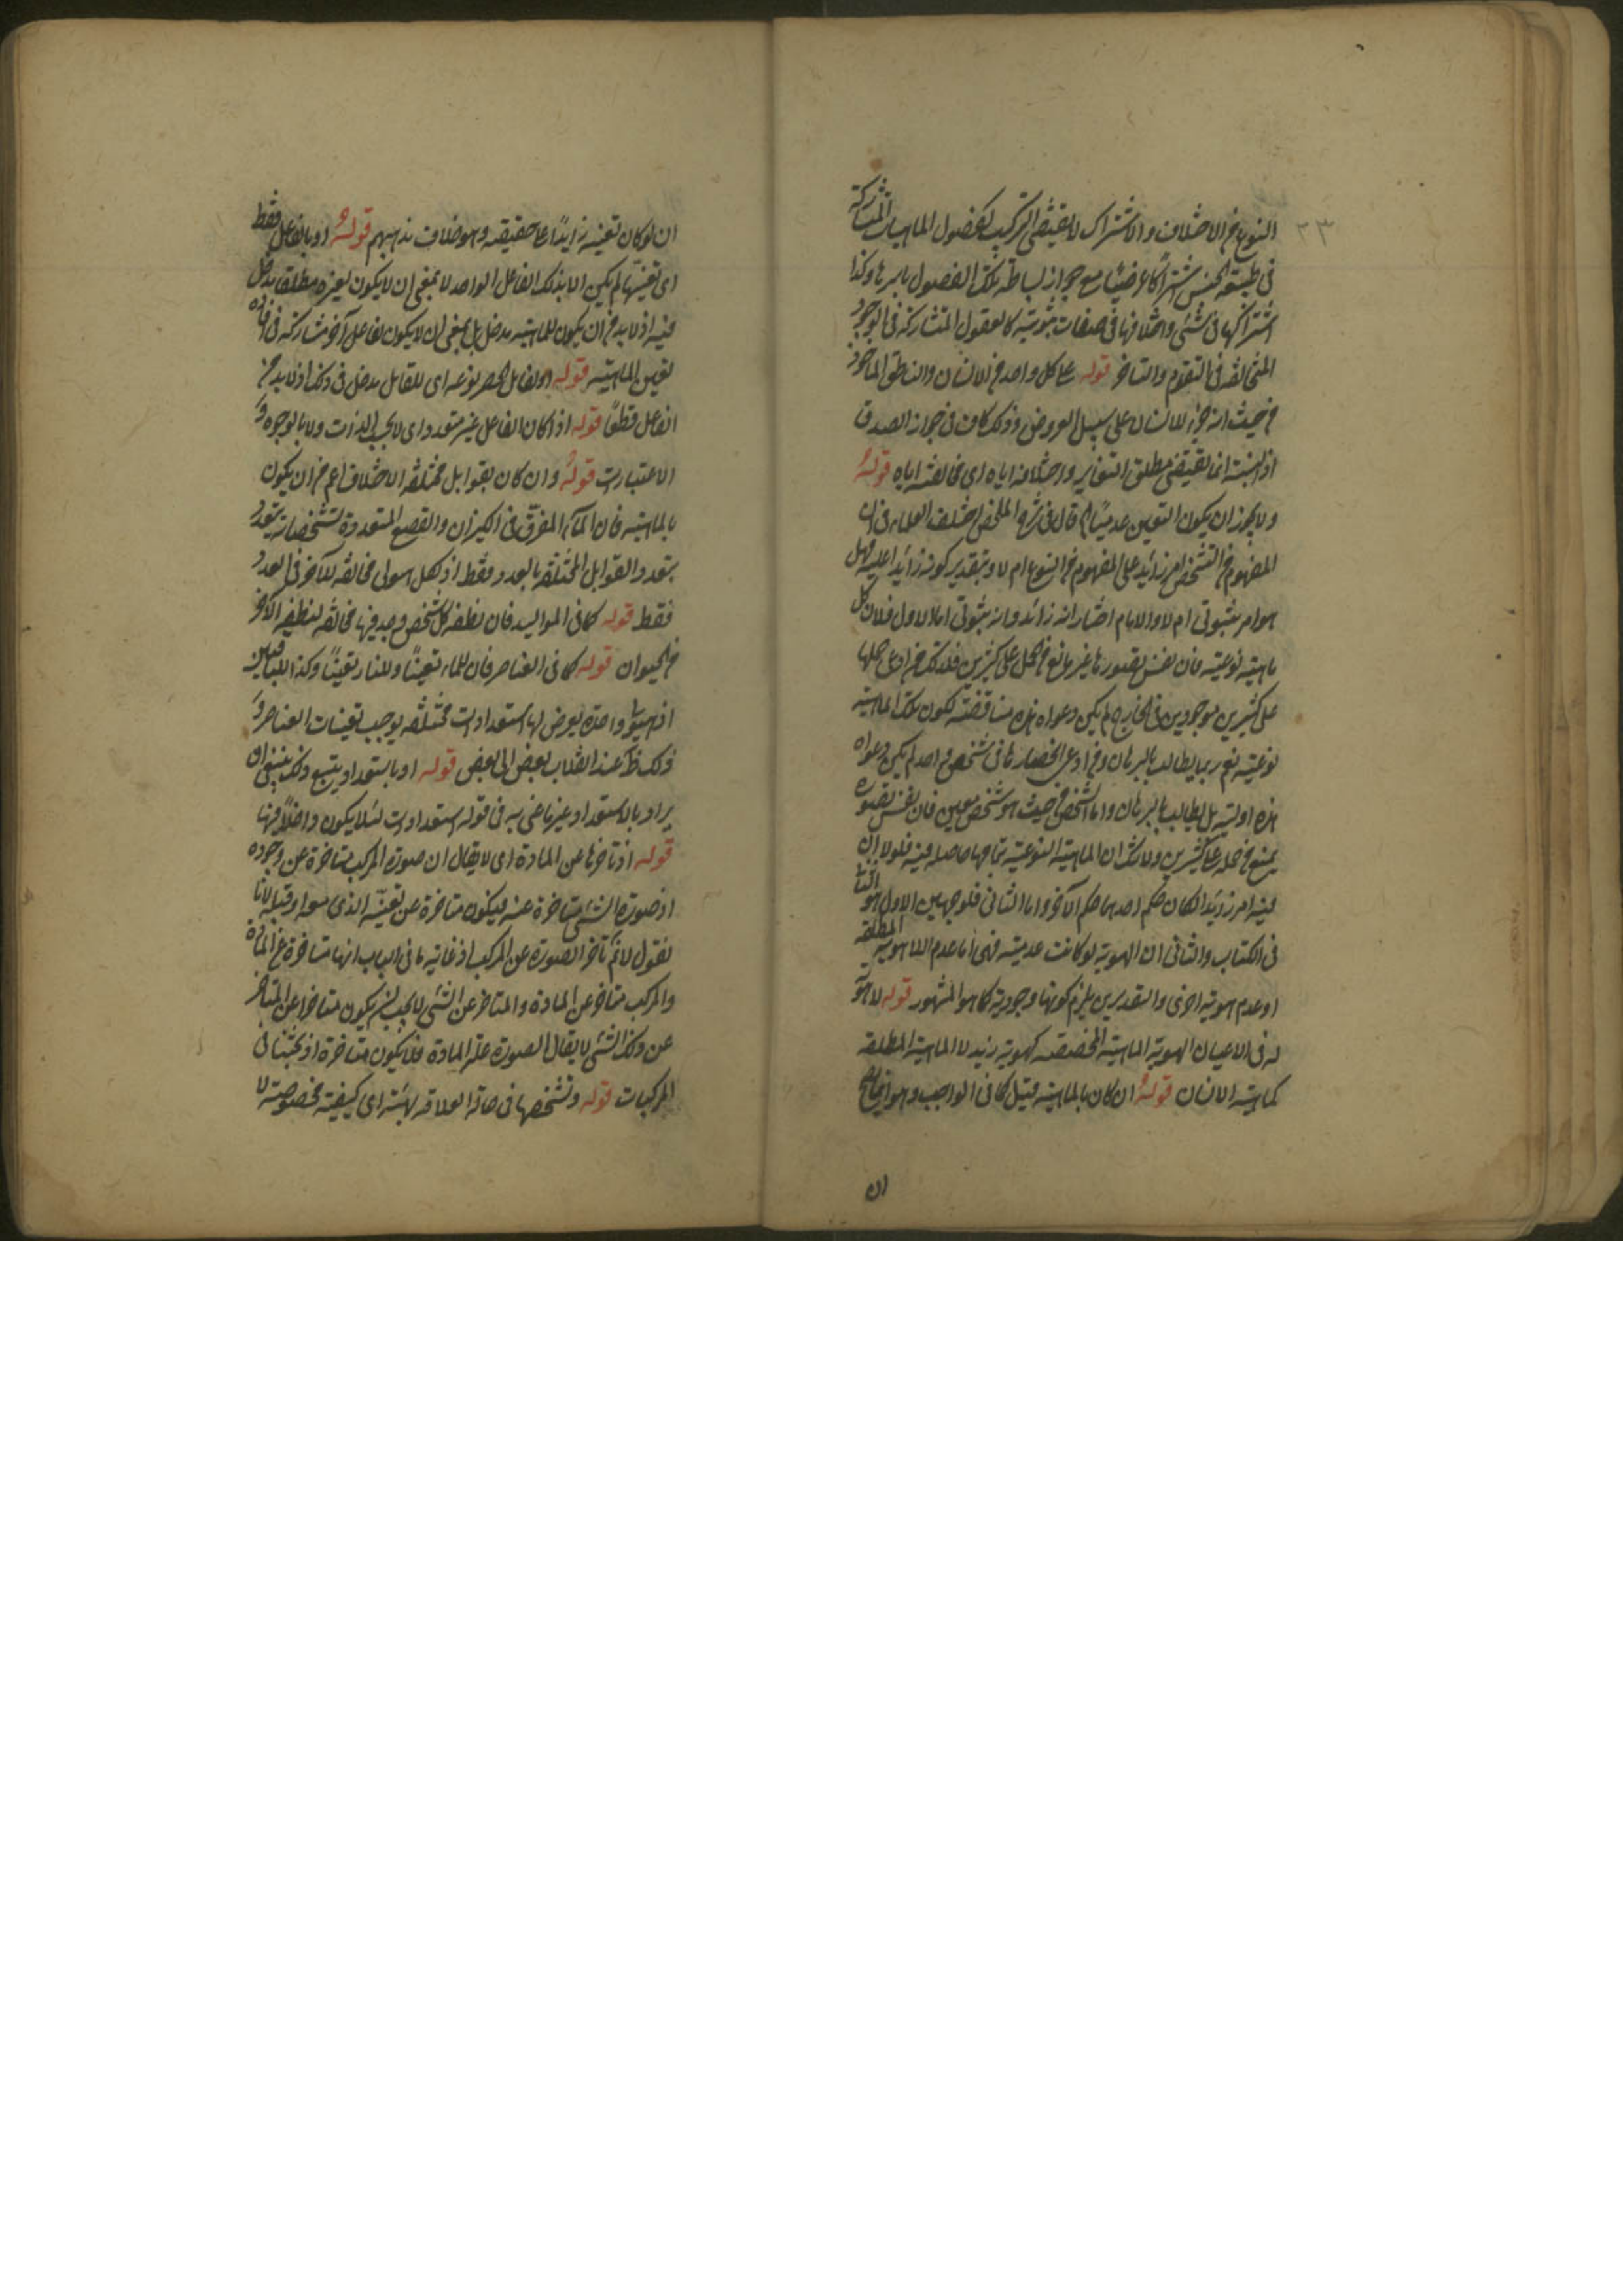 ٢٣
النوع من الاختلاف والاشتراك لا يقتضى التركيب كفصول الماهيات المتشاركة
فى طبيعة الجنس اشتراكا عرضيا مع جواز بساطة تلك الفصول باسرها وكذا
اشتراكها فى شئ واختلافها فى صفات ثبوتية كالعقول المتشاركة فى الوجود
المتخالفة فى التقوم والتاخر قوله على كل واحد من الانسان والناطق الماخوذ
من حيث انه جزء للانسان على سبيل العروض وذلك كاف فى جواز الصدق
اذ النسبة انما تقتضى مطلق التغاير واختلافه اياه اى مخالفته اياه قوله
ولا يجوز ان يكون التعين عدميا قال فى شرح الملخص اختلف العلماء فى ان
المفهوم من التشخص امر زائد على المفهوم من النوع ام لا وبتقدير كونه زائدا عليه فهل
هو امر ثبوتى ام لا والامام اختار انه زائد وانه ثبوتى اما الاول فلان كل
ماهية نوعية فان نفس تصورها غير مانع من الحمل على كثيرين فلذلك من ادعى حملها
على كثيرين موجودين فى الخارج لم يكن دعواه هذه مناقضة لكون تلك الماهية
نوعية نعم ربما يطالب بالبرهان ومن ادعى انحصارها فى شخص واحد لم يكن دعواه
هذه اولية بل يطالب بالبرهان واما الشخص من حيث هو شخص معين فان نفس تصوره
يمنع من حمله على كثيرين ولا شك ان الماهية النوعية بتمامها حاصلة فيه فلولا ان
فيه امر زائد لكان حكم احدهما حكم الآخر واما الثانى فلوجهين الاول هو
فى الكتاب والثانى ان الهوية لو كانت عدمية فهى اما عدم اللاهوية المطلقة
او عدم هوية اخرى والتقديرين يلزم كونها وجودية كما هو المشهور قوله لا هوية
له فى الاعيان الهوية الماهية المخصصة كهوية زيد لا الماهية المطلقة
كماهية الانسان قوله ان كان بالماهية قيل كما فى الواجب وهو
ان
ان لو كان تعينه زايدا على حقيقته وهو خلاف مذهبهم قوله او بالفاعل فقط
اى تعينها لم يكن الا بذلك الفاعل الواحد لا بمعنى ان لا يكون لغيره مطلقا مدخل
فيه اذ لا بد من ان يكون للماهية مدخل بل بمعنى ان لا يكون لفاعل آخر مشاركة فى
تعين الماهية قوله اى للقابل مدخل فى ذلك اذ لا بد من
الفاعل قطعا قوله اذا كان الفاعل غير متعدد اى لا بحسب الذات ولا بالوجوه و
الاعتبارات قوله وان كان بقوابل مختلفة الاختلاف اعم من ان يكون
بالماهية فان الماء المفرق فى الكيزان والقصع المتعددة تشخصاته يتعدد
بتعدد القوابل المختلفة بالعدد فقط اذ لكل هيولى مخالفة للآخر فى العدد
فقط قوله كما فى المواليد فان نطفة كل شخص وجد فيها مخالفة لنطفة الآخر
من الحيوان قوله كما فى العناصر فان للماء تعينا وللنار تعينا وكذا للباقيين
اذ هيولى واحدة يعرض لها استعدادات مختلفة يوجب تعينات العناصر و
ذلك ظ عند انقلاب بعض الى بعض قوله او باستعداد يتبع ذلك ينبغى ان
يراد بالاستعداد غير ما عنى به فى قوله استعدادات لئلا يكون داخلا فيها
قوله اذ تاخرها عن المادة اى لا يقال ان صورة المركب متاخرة عن وجوده
اذ صورة الشئ متاخرة عنه فيكون متاخرة عن تعينه الذى معه او قبله لانا
نقول لا نم تأخر الصورة عن المركب اذ غاية ما فى الباب انها متاخرة عن المادة
والمركب متاخر عن المادة والمتاخر عن الشئ لا يجب ان يكون متاخرا عن المتاخر
عن ذلك الشئ لا يقال الصورة علة المادة فلا يكون متاخرة اذ بحثنا فى
المركبات قوله وتشخصها فى حالة العلاقة بهيئة اى كيفية مخصوصة لا